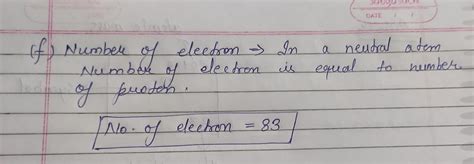 DATE
(f) Number of electron → In a neutral atom
Number of electron is equal to number
of proton.
No. of electron = 83